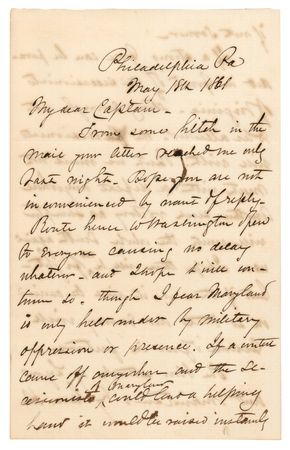 Philadelphia Pa
May 18th 1861
My dear Captain -
From some hitch in the
mail your letter reached me only
last night - Hope you are not
inconvenienced by want of reply -
Route hence to Washington open
to everyone causing no delay
whatever - and I hope t'will con-
tinue so - though I fear Maryland
is only held under by military
oppression or presence. If a
come off anywhere and the Se-
cessionists of Maryland could lend a helping
hand it would be raised instantly